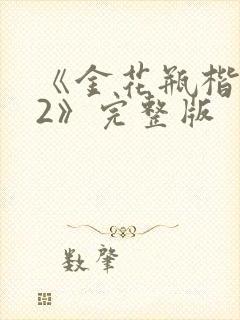 《金花瓶楷
2》完整版
数肇